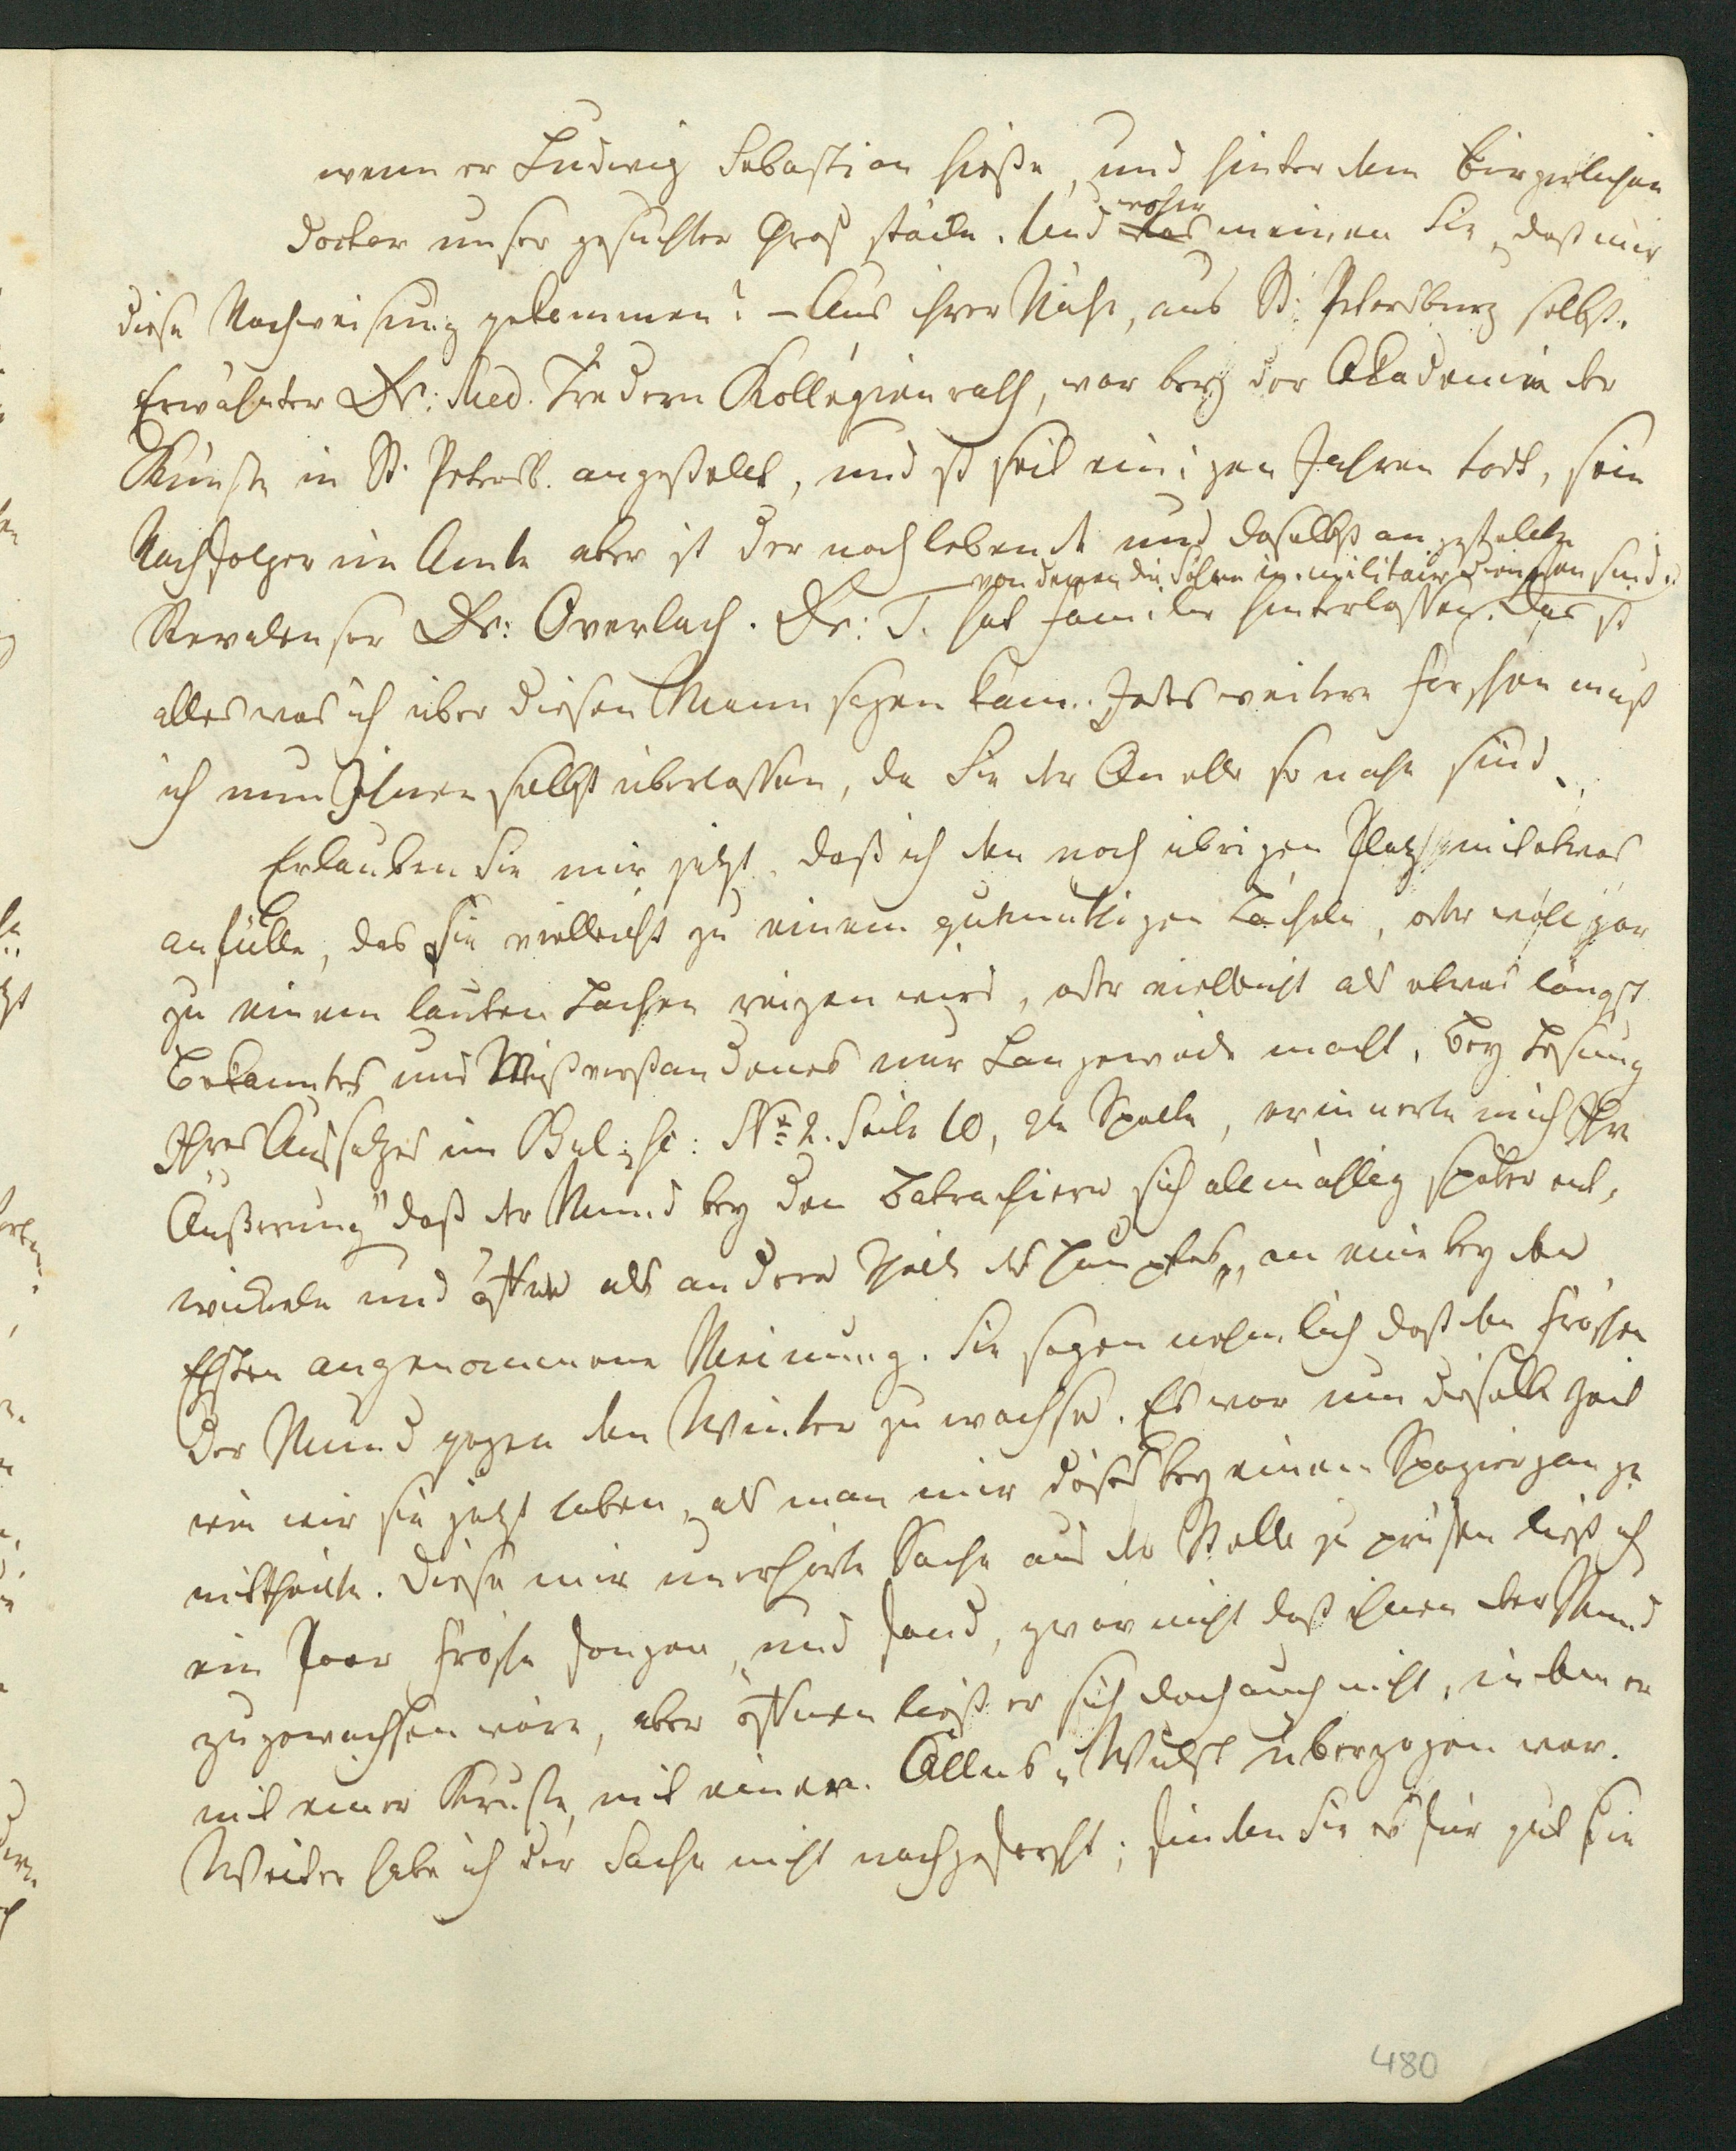 wenn er Ludwig Sebastian hieße, und hinter dem bürgerlichen
Doctor unser gesuchter Graf stäcke. Und woher meinen Sie, daß mir
diese Nachweisung gekommen? – Aus ihrer Nähe, aus St: Petersburg selbst.
Erwähnter Dr: Med. Tredern Kollegienrath, war bey der Akademie der
Künste in St. Petersb. angestellt, und ist seit einigen Jahren todt, sein
Nachfolger im Amte aber ist der noch lebende und daselbst angestellte
von denen die Söhne in Militairdiensten sind.
Revalenser Dr: Overlach. Dr: T. hat Familie hinterlassen. Das ist
alles was ich über diesen Mann sagen kann. Jedes weitere Forschen muß
ich nun Ihnen selbst überlassen, da Sie der Quelle so nahe sind.
Erlauben Sie mir jetzt, daß ich den noch übrigen Platz mit etwas
anfülle, das Sie vielleicht zu einem gutmüthigen Lächeln, oder wohl gar
zu einem lauten Lachen reizen wird, oder vielleicht als etwas längst
Bekanntes und Mißverstandenes nur Langeweile macht. Bey Lesung
Ihres Aufsatzes im Bul: sc: No 2. Seite 10, 2te Spalte, erinnerte mich Ihre
Äußerung "daß der Mund bey den Batrachiern sich allmählig später ent-
wickele und öffne als andere Theile des Kopfes", an eine bey den
Esten angenommene Meinung. Sie sagen nehmlich daß den Fröschen
der Mund gegen den Winter zu wachse. Es war um dieselbe Zeit
wie wir sie jetzt leben, als man mir dieses bey einem Spaziergange
mittheilte. Diese mir unerhörte Sache auf der Stelle zu prüfen ließ ich
ein Paar Frösche fangen, und fand, zwar nicht daß ihnen der Mund
zugewachsen wäre, aber öffnen ließ er sich doch auch nicht, indem er
mit einer Kruste, mit einer Callus-Wulst überzogen war.
Weiter habe ich der Sache nicht nachgeforscht; finden Sie es für gut die
480